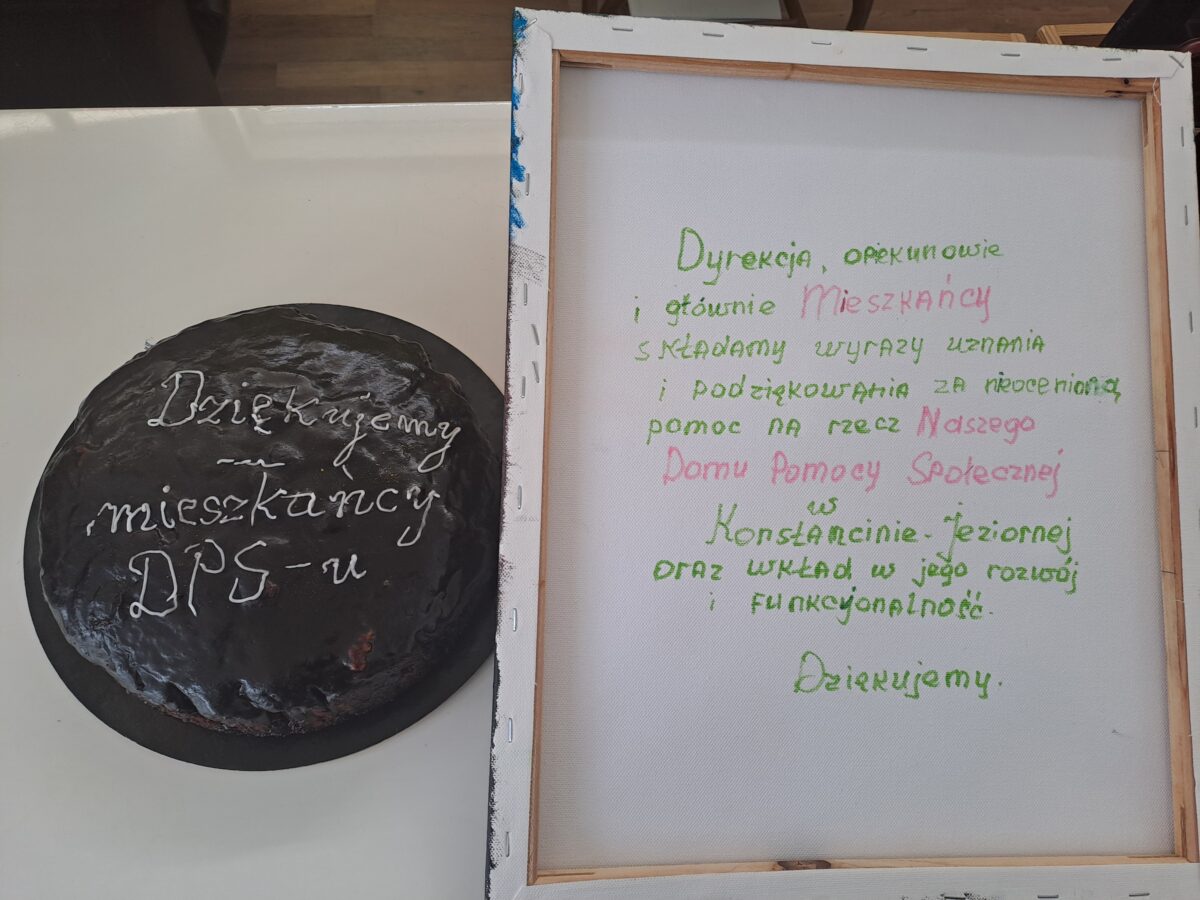 Dziękujemy
mieszkańcy
DPS-u
Dyrekcja, opiekunowie
i głównie Mieszkańcy
składamy wyrazy uznania
i podziękowania za nieocenioną
pomoc na rzecz Naszego
Domu Pomocy Społecznej
w
Konstancinie-Jeziornej
oraz wkład w jego rozwój
i funkcjonalność.
Dziękujemy.